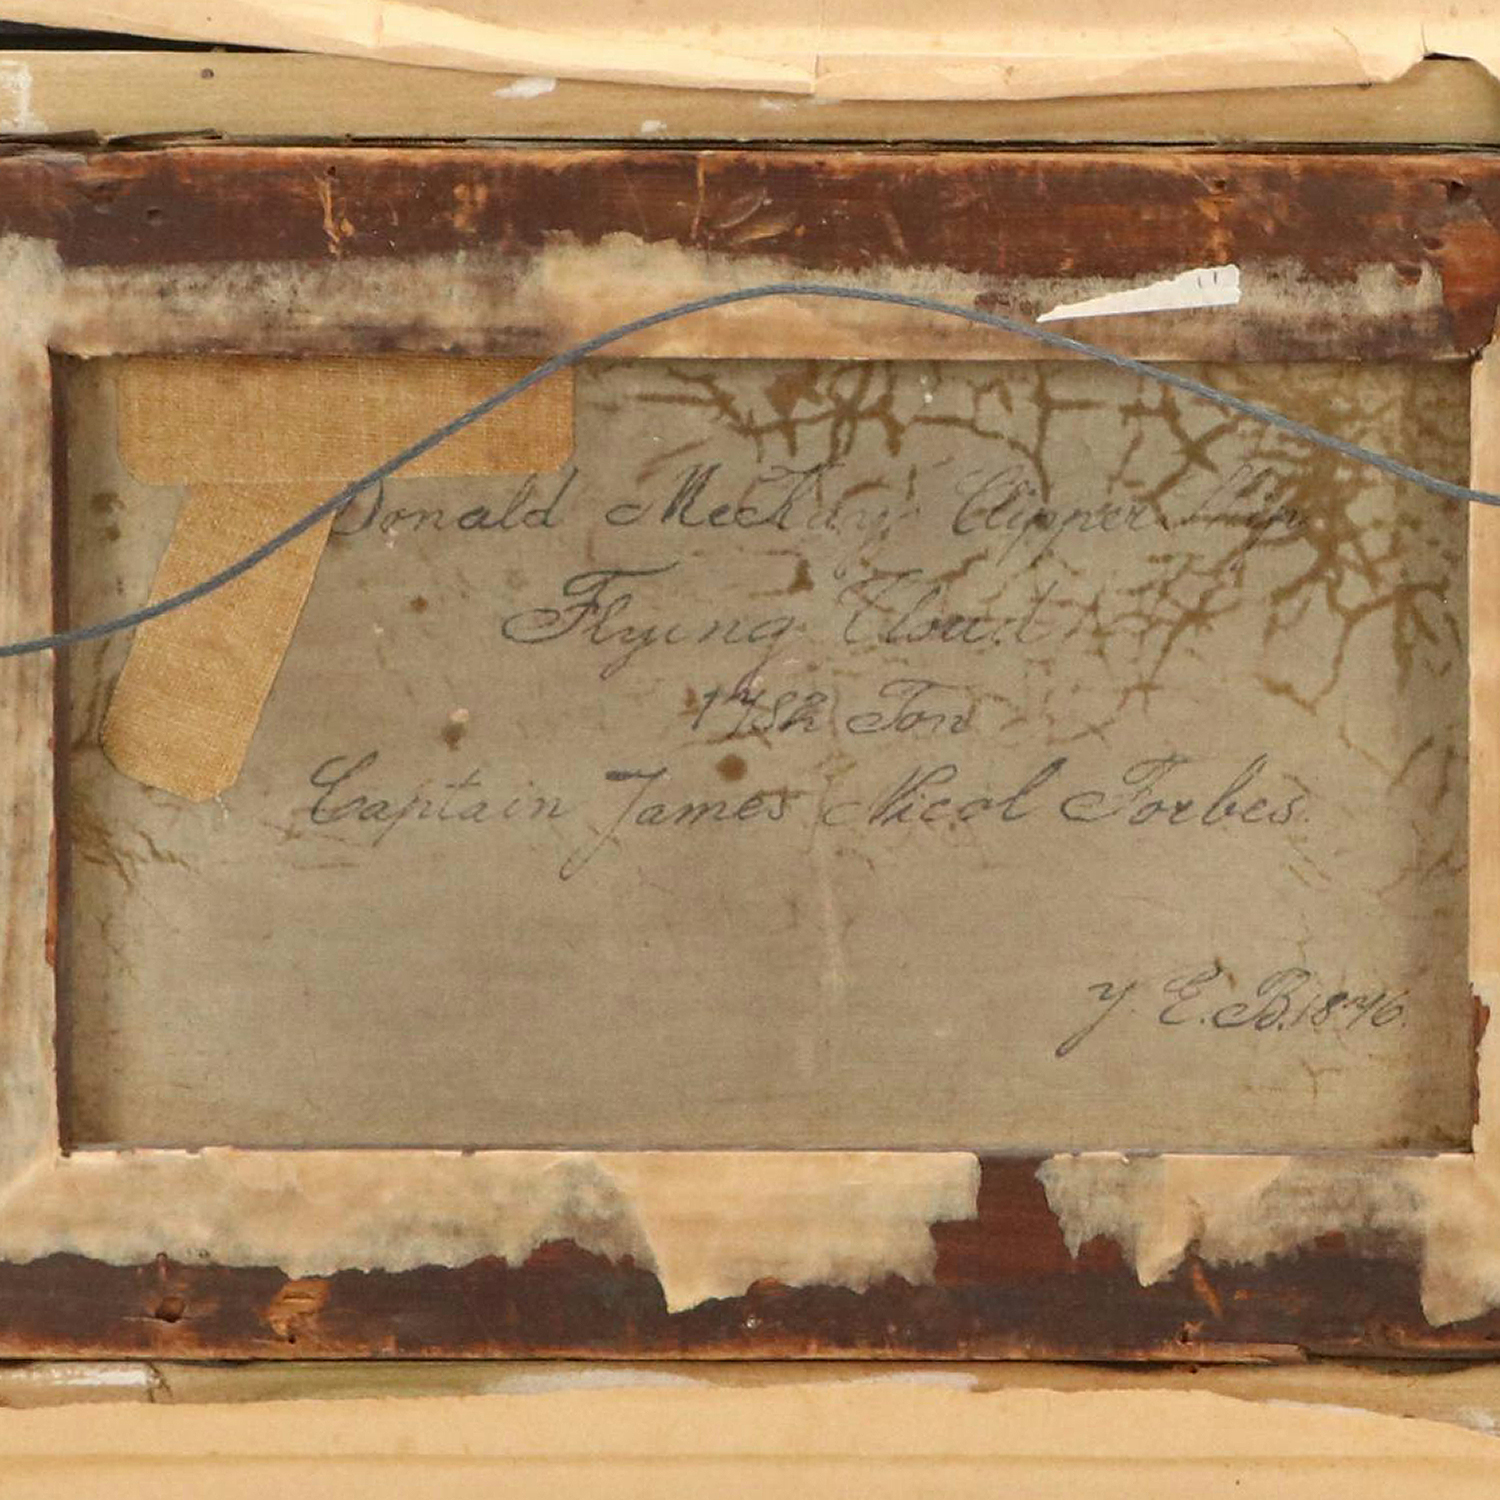 Donald McKay Clipper Ship
Flying Cloud
1782 Ton
Captain James Nicol Forbes.
Y. E. B. 1876.